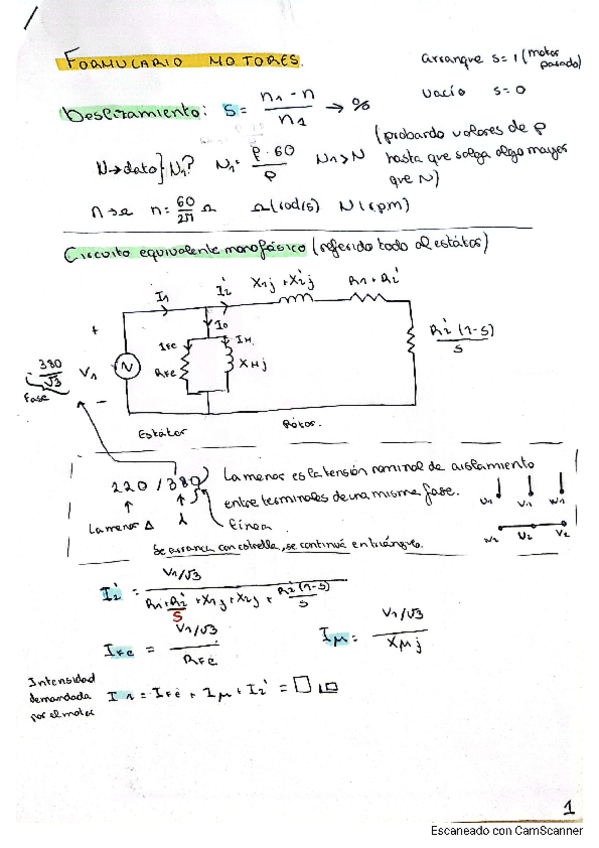 FORMULARIO MOTORES.
arranque s=1 (motor parado)
vacío s=0
Deslizamiento: S = (n1 - n) / n1 → %
(probando valores de p hasta que salga algo mayor que N)
N→dato} N1? N1 = f·60 / p N1>N
n→Ω n = 60/2π Ω Ω(rad/s) N(rpm)
Circuito equivalente monofásico (referido todo al estátor)
I1 I2' X1j + X2'j R1 + R2'
I0
IFe IM
RFe XMj
R2'(1-s)/s
+
380/√3 V1
Fase
-
Estátor Rotor.
220/380
La menor es la tensión nominal de aislamiento
entre terminales de una misma fase.
La menor Δ λ línea
U1 V1 W1
W2 U2 V2
Se arranca con estrella, se continua en triángulo.
I2' = V1/√3 / (R1 + R2'/S + X1j + X2j + R2'(1-s)/s)
IFe = V1/√3 / RFe
Iμ = V1/√3 / Xμj
Intensidad demandada por el motor
I1 = IFe + Iμ + I2' =
1
Escaneado con CamScanner